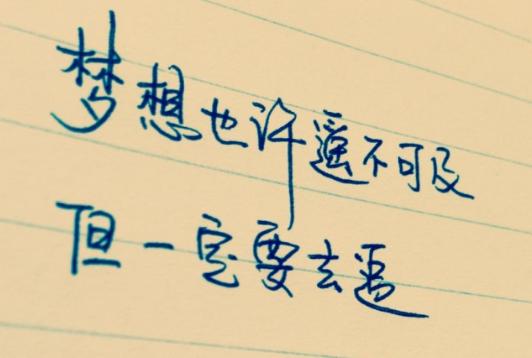 梦想也许遥不可及
但一定要去追